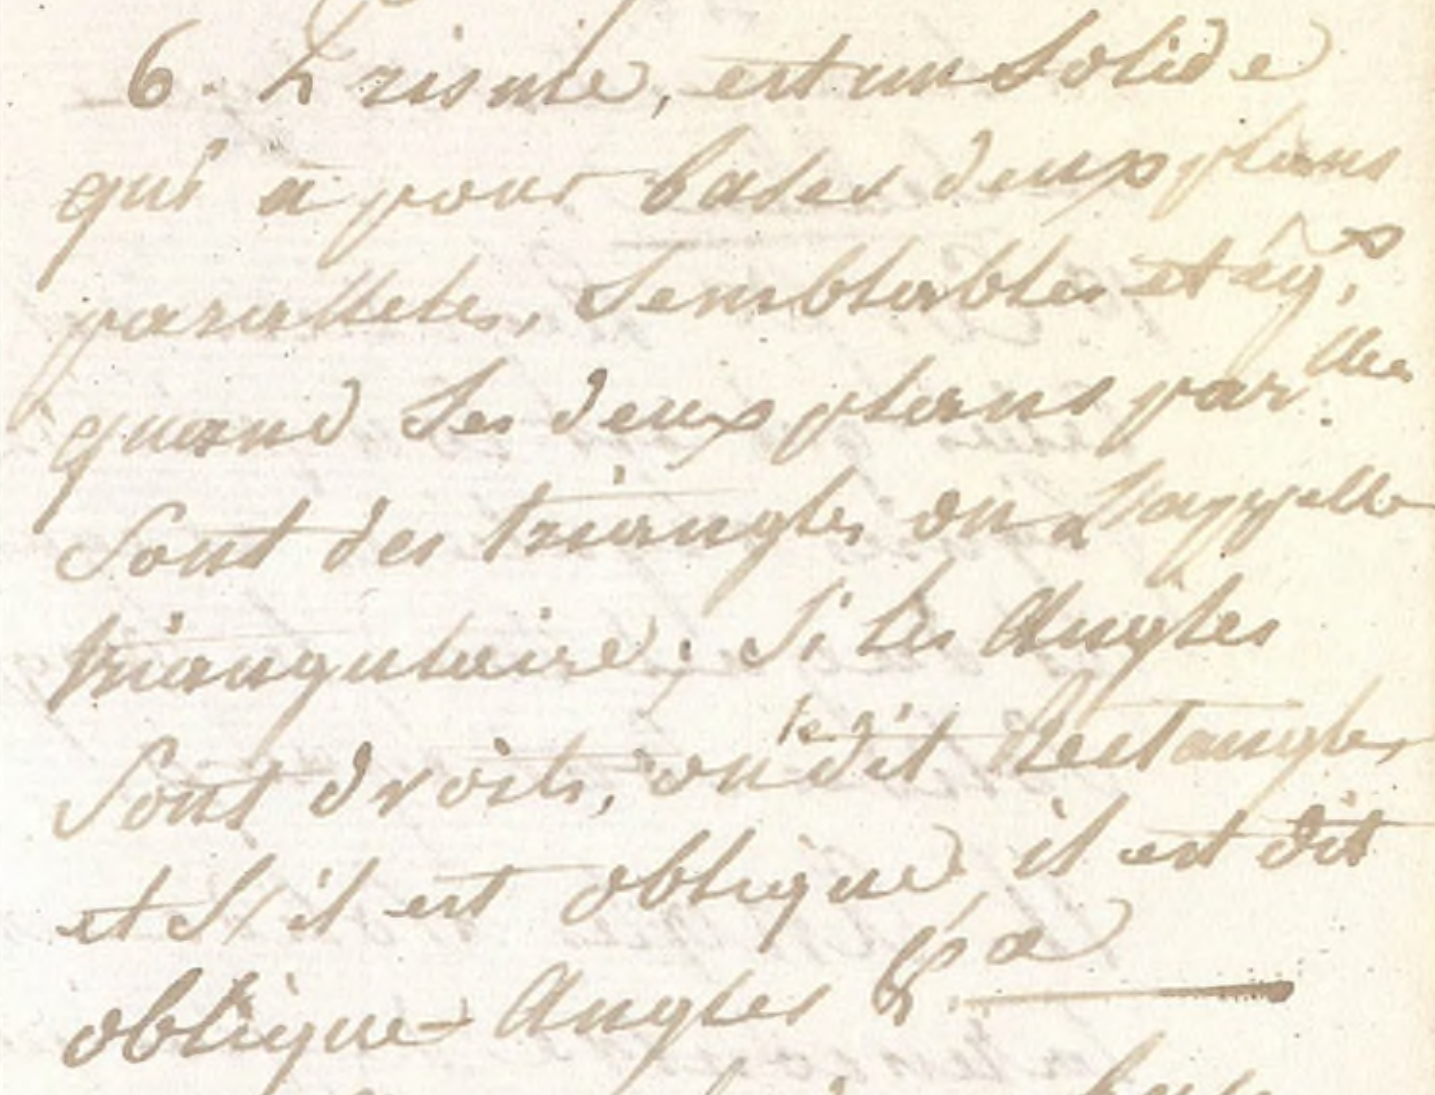 6. Prisme, est un Solide
qui a pour bases deux plans
paralleles, Semblables et eg.x
quand Ses deux plans par.lles
Sont des triangles on L'appelle
triangulaire; Si les Angles
Sont droits, on le dit Rectangles
et S'il est oblique, il est dit
oblique-Angles &.a